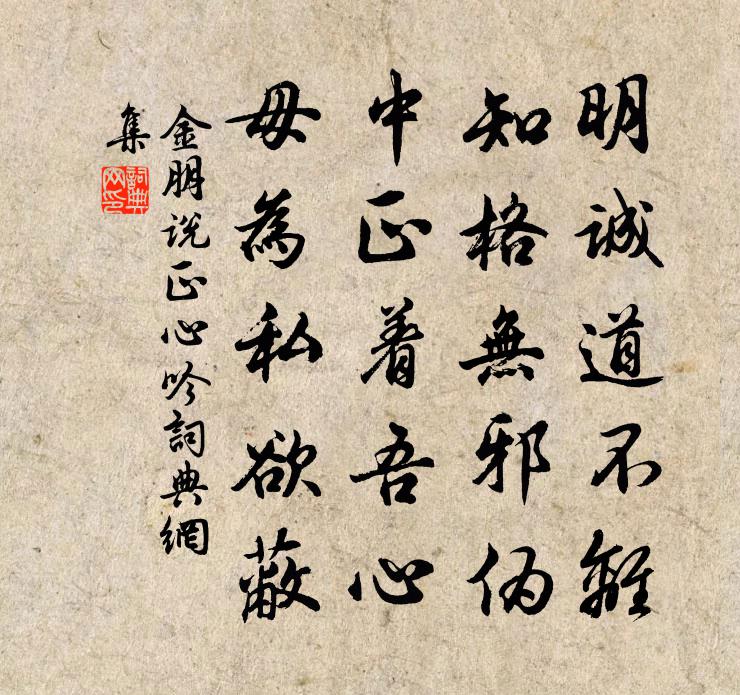 明誠道不離
知格無邪偽
中正着吾心
毋為私欲蔽
金朋说正心吟詞典網
集
詞典
网印